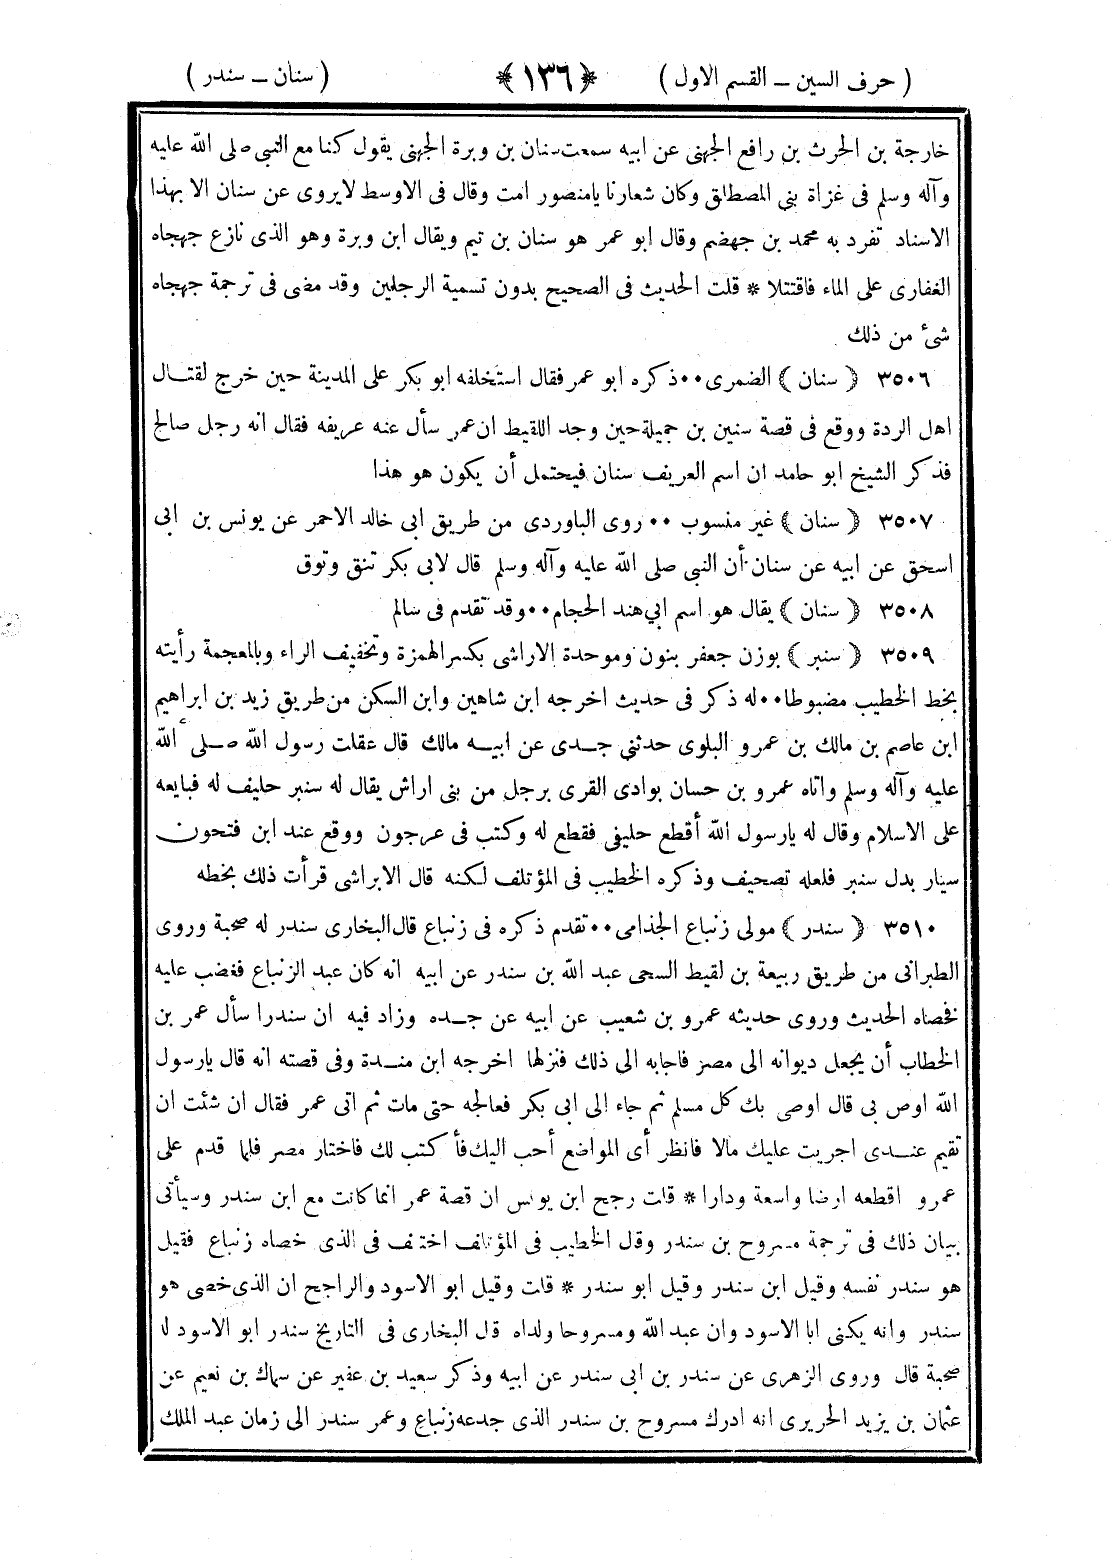 ( حرف السين ــ القسم الاول ) ﴿ ١٣٦ ﴾ ( سنان ــ سندر )
خارجة بن الحرث بن رافع الجهنى عن ابيه سمعت سنان بن وبرة الجهنى يقول كنا مع النبى صلى الله عليه
وآله وسلم فى غزاة بنى المصطلق وكان شعارنا يامنصور امت وقال فى الاوسط لايروى عن سنان الا بهذا
الاسناد تفرد به محمد بن جهضم وقال ابو عمر هو سنان بن تيم ويقال ابن وبرة وهو الذى نازع جهجاه
الغفارى على الماء فاقتتلا * قلت الحديث فى الصحيح بدون تسمية الرجلين وقد مضى فى ترجمة جهجاه
شئ من ذلك
٣٥٠٦ ﴿ سنان ﴾ الضمرى ٠٠ ذكره ابو عمر فقال استخلفه ابو بكر على المدينة حين خرج لقتـال
اهل الردة ووقع فى قصة سنين بن جميلة حين وجد اللقيط ان عمر سأل عنه عريفه فقال انه رجل صالح
فذكر الشيخ ابو حامد ان اسم العريف سنان فيحتمل أن يكون هو هذا
٣٥٠٧ ﴿ سنان ﴾ غير منسوب ٠٠ روى الباوردى من طريق ابى خالد الاحمر عن يونس بن ابى
اسحق عن ابيه عن سنان أن النبى صلى الله عليه وآله وسلم قال لابى بكر تنق وتوق
٣٥٠٨ ﴿ سنان ﴾ يقال هو اسم ابي هند الحجام ٠٠ وقد تقدم فى سالم
٣٥٠٩ ﴿ سنبر ﴾ بوزن جعفر بنون وموحدة الاراشى بكسر الهمزة وتخفيف الراء وبالمعجمة رأيته
بخط الخطيب مضبوطا ٠٠ له ذكر فى حديث اخرجه ابن شاهين وابن السكن من طريق زيد بن ابراهيم
ابن عاصم بن مالك بن عمرو البلوى حدثنى جـدى عن ابيـه مالك قال عقلت رسول الله صـلى الله
عليه وآله وسلم واتاه عمرو بن حسان بوادى القرى برجل من بنى اراش يقال له سنبر حليف له فبايعه
على الاسلام وقال له يارسول الله أقطع حليفى فقطع له وكتب فى عرجون ووقع عند ابن فتحون
سيار بدل سنبر فلعله تصحيف وذكره الخطيب فى المؤتلف لكنه قال الابراشى قرأت ذلك بخطه
٣٥١٠ ﴿ سندر ﴾ مولى زنباع الجذامى ٠٠ تقدم ذكره فى زنباع قال البخارى سندر له صحبة وروى
الطبرانى من طريق ربيعة بن لقيط السحى عبد الله بن سندر عن ابيه انه كان عبد الزنباع فغضب عليه
فخصاه الحديث وروى حديثه عمرو بن شعيب عن ابيه عن جـده وزاد فيه ان سندرا سأل عمر بن
الخطاب أن يجعل ديوانه الى مصر فاجابه الى ذلك فنزلها اخرجه ابن منـدة وفى قصته انه قال يارسول
الله اوص بى قال اوصى بك كل مسلم ثم جاء الى ابى بكر فعالجه حتى مات ثم اتى عمر فقال ان شئت ان
تقيم عنـدى اجريت عليك مالا فانظر أى المواضع أحب اليك فأكتب لك فاختار مصر فلما قدم على
عمرو اقطعه ارضا واسعة ودارا * قلت رجح ابن يونس ان قصة عمر انما كانت مع ابن سندر وسيأتى
بيان ذلك فى ترجمة مسروح بن سندر وقل الخطيب فى المؤتلف اختلف فى الذى خصاه زنباع فقيل
هو سندر نفسه وقيل ابن سندر وقيل ابو سندر * قلت وقيل ابو الاسود والراجح ان الذى خصى هو
سندر وانه يكنى ابا الاسود وان عبد الله ومسروحا ولداه قل البخارى فى التاريخ سندر ابو الاسود له
صحبة قال وروى الزهرى عن سندر بن ابى سندر عن ابيه وذكر سعيد بن عفير عن سماك بن نعيم عن
عثمان بن يزيد الحريرى انه ادرك مسروح بن سندر الذى جدعه زنباع وعمر سندر الى زمان عبد الملك